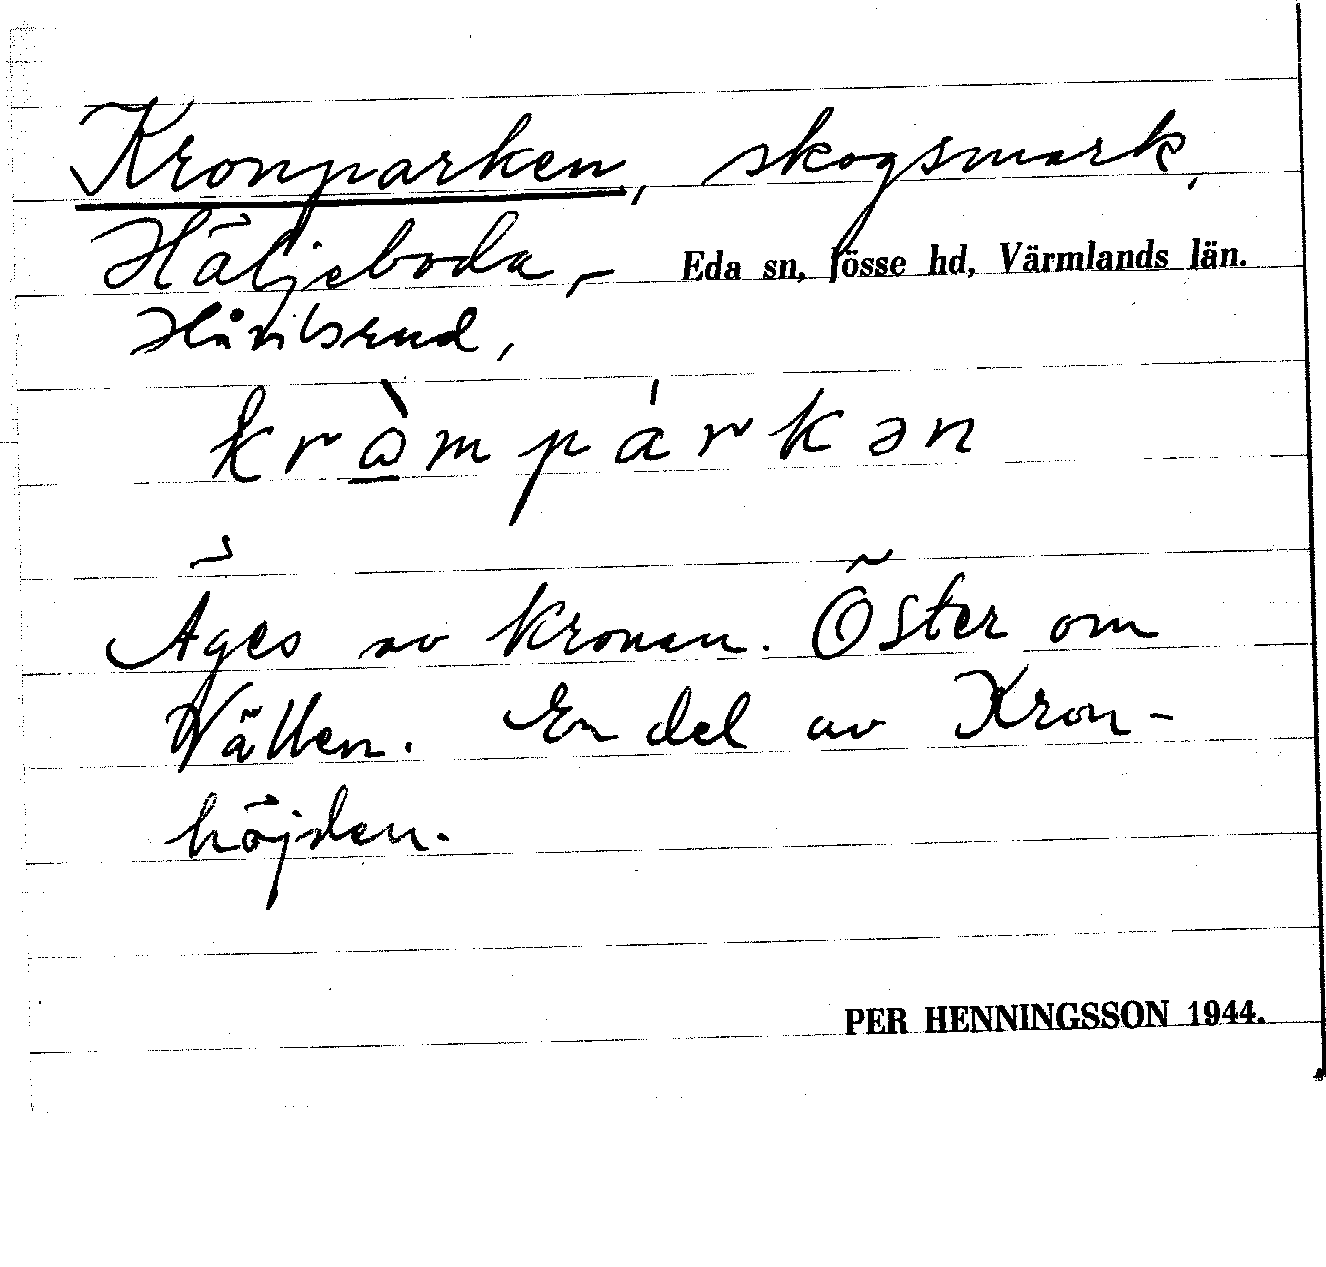 Kronparken, skogsmark,
Häljeboda, Eda sn, Jösse hd, Värmlands län.
Håvilsrud,
Äges av kronan. Öster om
Vällen. En del av Kron-
höjden.
PER HENNINGSSON 1944.